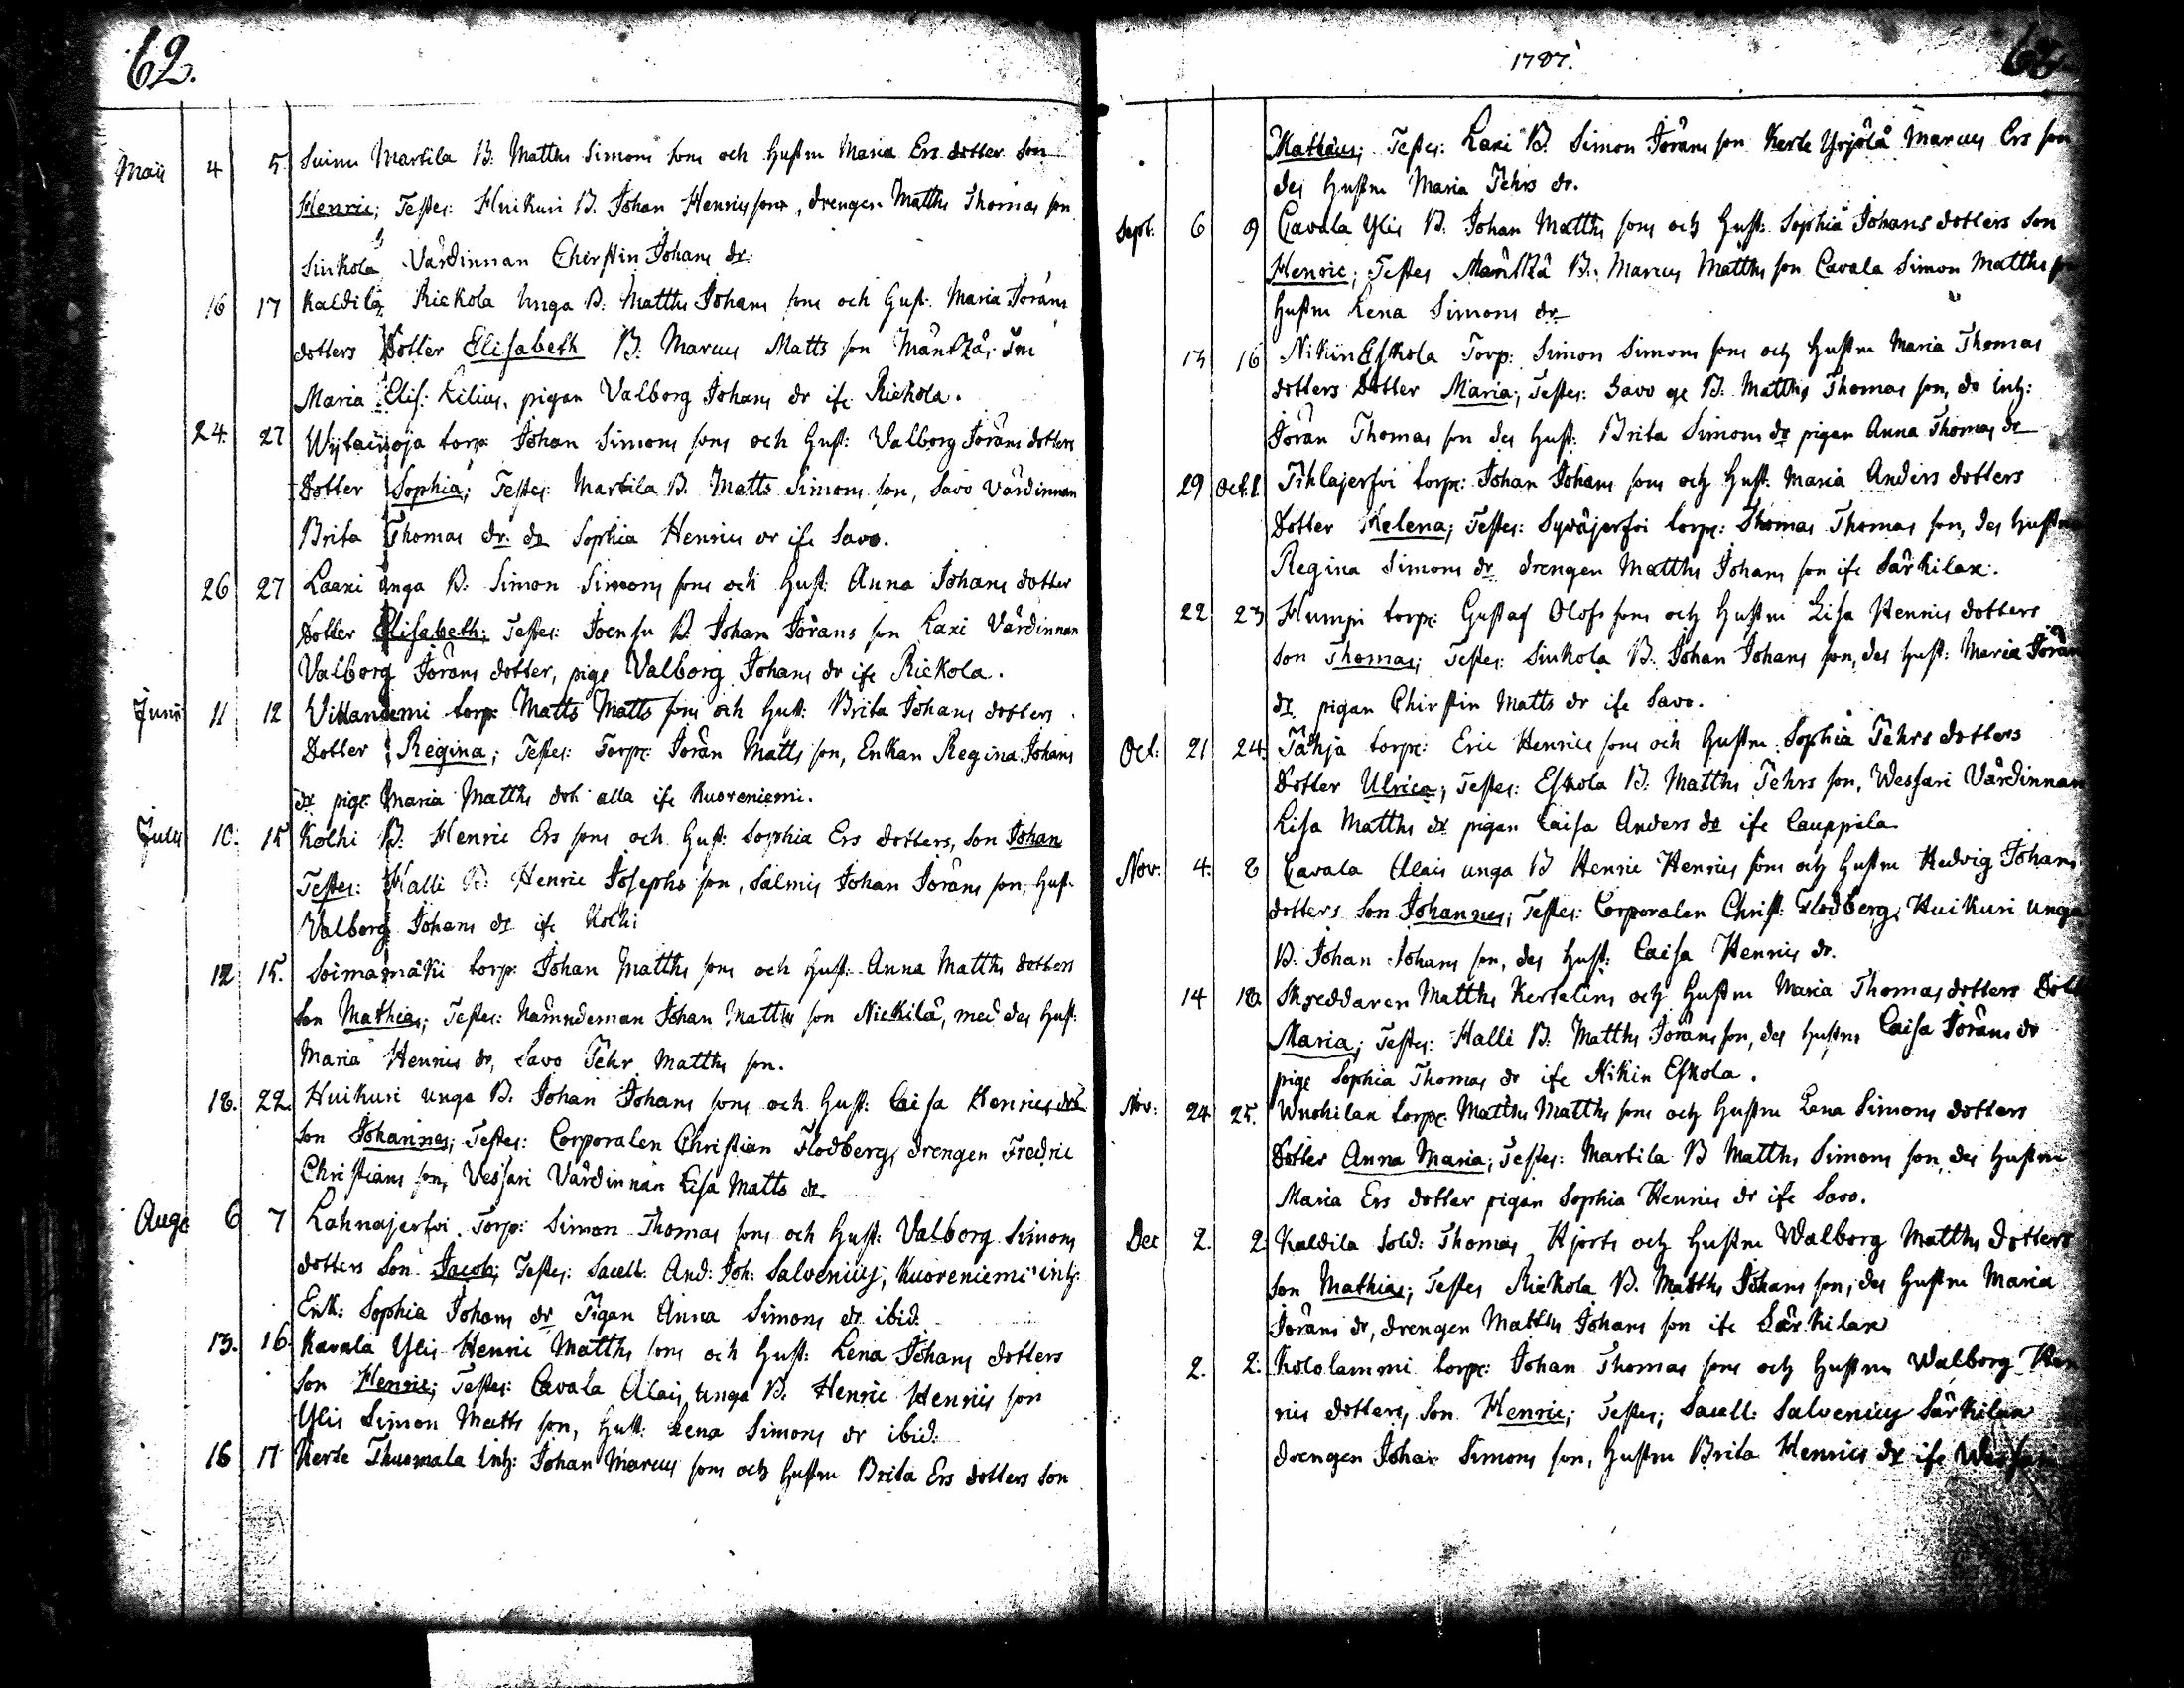 62.
Maii 4 5. Suinu Martila B. Matths Simons sons och Hustru Maria Ers dotter son
Henric; Testes: Huikuri B. Johan Henrics son, drengen Matths Thomas son
Sinkola Värdinnan Chirstin Johans dr.
16 17 Kaldila Rickola Unga B. Matths Johans sons och Hust. Maria Jörans
dotters Dotter Elisabeth B. Marcus Matts son Mänttä, Jm
Maria Elis: Lilius, pigan Valborg Johans dr ife Rickola.
24. 27 torp. Johan Simons sons och Hust: Valborg Jörans dotters
Dotter Sophia; Testes: Martila B. Matts Simons son, Savo Värdinnan
Brita Thomas dr. dr Sophia Henrics dr ife Savo.
26 27 Laxi Unga B. Simon Simons sons och Hust: Anna Johans dotter
Dotter Elisabeth; Testes: Joensu B. Johan Jörans son Laxi Värdinnan
Valborg Jörans dotter, piga Valborg Johans dr ife Rickola.
Junii 11 12 Vittaniemi torp: Matts Matts sons och Hust: Brita Johans dotters
Dotter Regina; Testes: Torp: Jöran Matts son, Enkan Regina Johans
dr piga Maria Matths dotr alla ife Kuoreniemi.
Julii 10. 15 Kolhi B. Henric Ers sons och Hust: Sophia Ers dotters, son Johan
Testes: Halli B. Henric Josephs son, Salmis Johan Jörans son, Hust.
Valborg Johans dr ife Kolhi
12 15. Soimamäki torp: Johan Matths sons och Hust: Anna Matths dotters
son Mathias; Testes: Nämndeman Johan Matths son Nickilä, med des Hust:
Maria Henrics dr, Savo Pehr Matths son.
18. 22. Huikuri unga B. Johan Johans sons och Hust: Caisa Henrics drs
son Johannes; Testes: Corporalen Christian Flodberg, drengen Fredric
Christians son, Vessari Värdinnan Lisa Matts dr.
Aug. 6 7 Lahnajerfvi Torp: Simon Thomas sons och Hust: Valborg Simons
dotters Son Jacob; Testes: Sacell: And: Joh: Salvenius, Kuoreniemi inh:
Enk: Sophia Johans dr Pigan Anna Simons dr ibid.
13. 16. Kavala Ylis Henric Matths sons och Hust: Lena Johans dotters
Son Henric; Testes: Cavala Alais unga B. Henric Henrics son
Ylis Simon Matts son, Hust: Lena Simons dr ibid:
16 17 Kerte Thuomala Inh: Johan Marcus sons och Hustru Brita Ers dotters Son
1787.
Mathæus; Testes: Laxi B. Simon Jörans son Kerte Yrjölä Marcus Ers son
des Hustru Maria Pehrs dr.
Sept. 6 9 Cavala Ylis B. Johan Matths sons och Hust: Sophia Johans dotters Son
Henric; Testes Mänttä B: Marcus Matths son Cavala Simon Matths
Hustru Lena Simons dr
13 16 Nikin Eskola Torp: Simon Simons sons och Hustru Maria Thomas
dotters Dotter Maria; Testes: Savo B. Matths Thomas son, do Inh:
Jöran Thomas son des Hust: Brita Simons dr pigan Anna Thomas dr
29 Oct. 1. Pihlajerfvi torp: Johan Johans sons och Hust: Maria Anders dotters
Dotter Helena; Testes: Sywäjerfvi torp: Thomas Thomas son, des Hustru
Regina Simons dr drengen Matths Johans son ife Särkilax.
22 23 Humpi torp: Gustaf Olofs sons och Hustru Lisa Henrics dotters
Son Thomas; Testes: Sinkola B. Johan Johans son, des Hust: Maria Jörans
dr pigan Chirstin Matts dr ife Savo.
Oct: 21 24. Tähjä torp: Eric Henrics sons och Hustru Sophia Pehrs dotters
Dotter Ulrica; Testes: Eskola B: Matths Pehrs son, Wessari Värdinnan
Lisa Matths dr pigan Caisa Anders dr ife Cauppila
Nov: 4. 8 Cavala Alais unga B Henric Henrics sons och Hustru Hedvig Johans
dotters Son Johannes; Testes: Corporalen Christ: Flodberg, Huikuri unga
B. Johan Johans son, des Hust: Caisa Henrics dr.
14 18. Skreddaren Matths Kertelius och Hustru Maria Thomas dotters
Maria; Testes: Halli B. Matths Jörans son, des Hustru Caisa Jörans dr
piga Sophia Thomas dr ife Nikin Eskola.
Nov: 24 25. Wuohilax torp: Matths Matths sons och Hustru Lena Simons dotters
Dotter Anna Maria; Testes: Martila B Matths Simons son, des Hustru
Maria Ers dotter pigan Sophia Henrics dr ife Savo.
Dec 2. 2 Kaldila Sold: Thomas Hjorts och Hustru Walborg Matths dotters
Son Mathias; Testes Rickola B. Matths Johans son, des Hustru Maria
Jörans dr, drengen Matths Johans son ife Särkilax
2. 2. Kololammi torp: Johan Thomas sons och Hustru Walborg Hen
rics dotters, Son Henric; Testes; Sacell: Salvenius Särkilax
drengen Johan Simons son, Hustru Brita Henrics dr ife Wessari